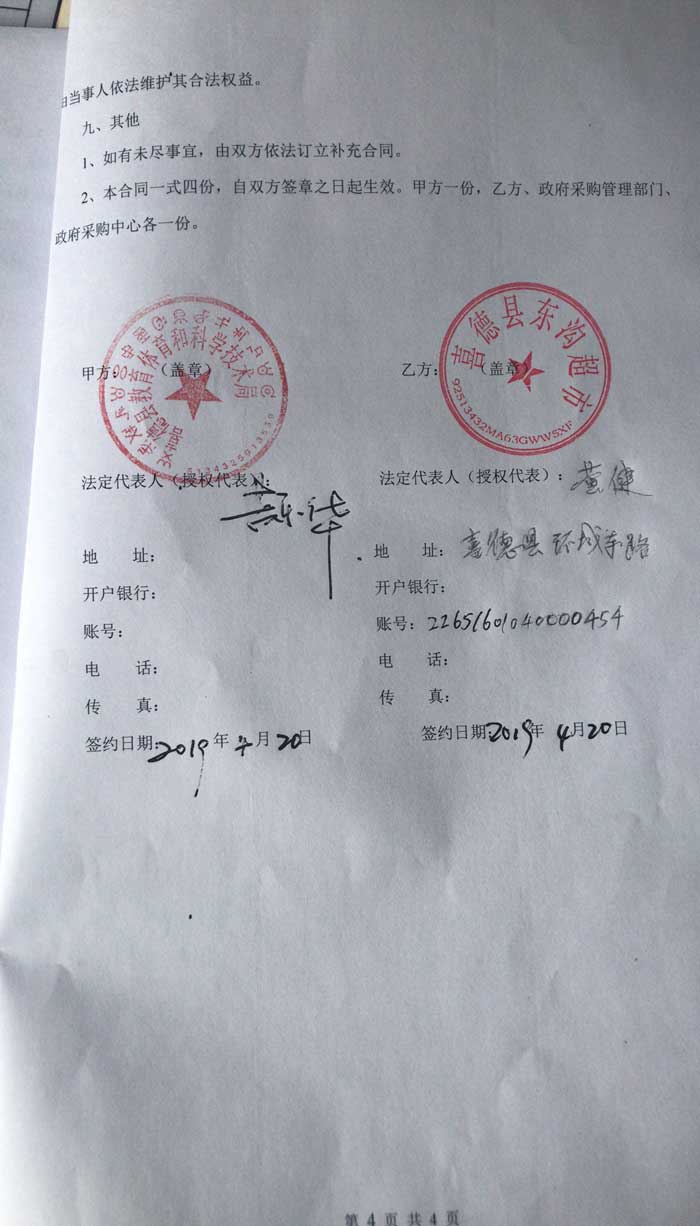 由当事人依法维护其合法权益。
九、其他
1、如有未尽事宜，由双方依法订立补充合同。
2、本合同一式四份，自双方签章之日起生效。甲方一份，乙方、政府采购管理部门、
政府采购中心各一份。
甲方：（盖章）
喜德县教育体育和科学技术局
乙方：（盖章）
喜德县东沟超市
92513432MA63GWW5XF
法定代表人（授权代表）：
法定代表人（授权代表）：黄健
地 址：
地 址：喜德县环城东路
开户银行：
开户银行：
账号：
账号：22651601040000454
电 话：
电 话：
传 真：
传 真：
签约日期：2019年4月20日
签约日期：2019年4月20日
第 4 页 共 4 页